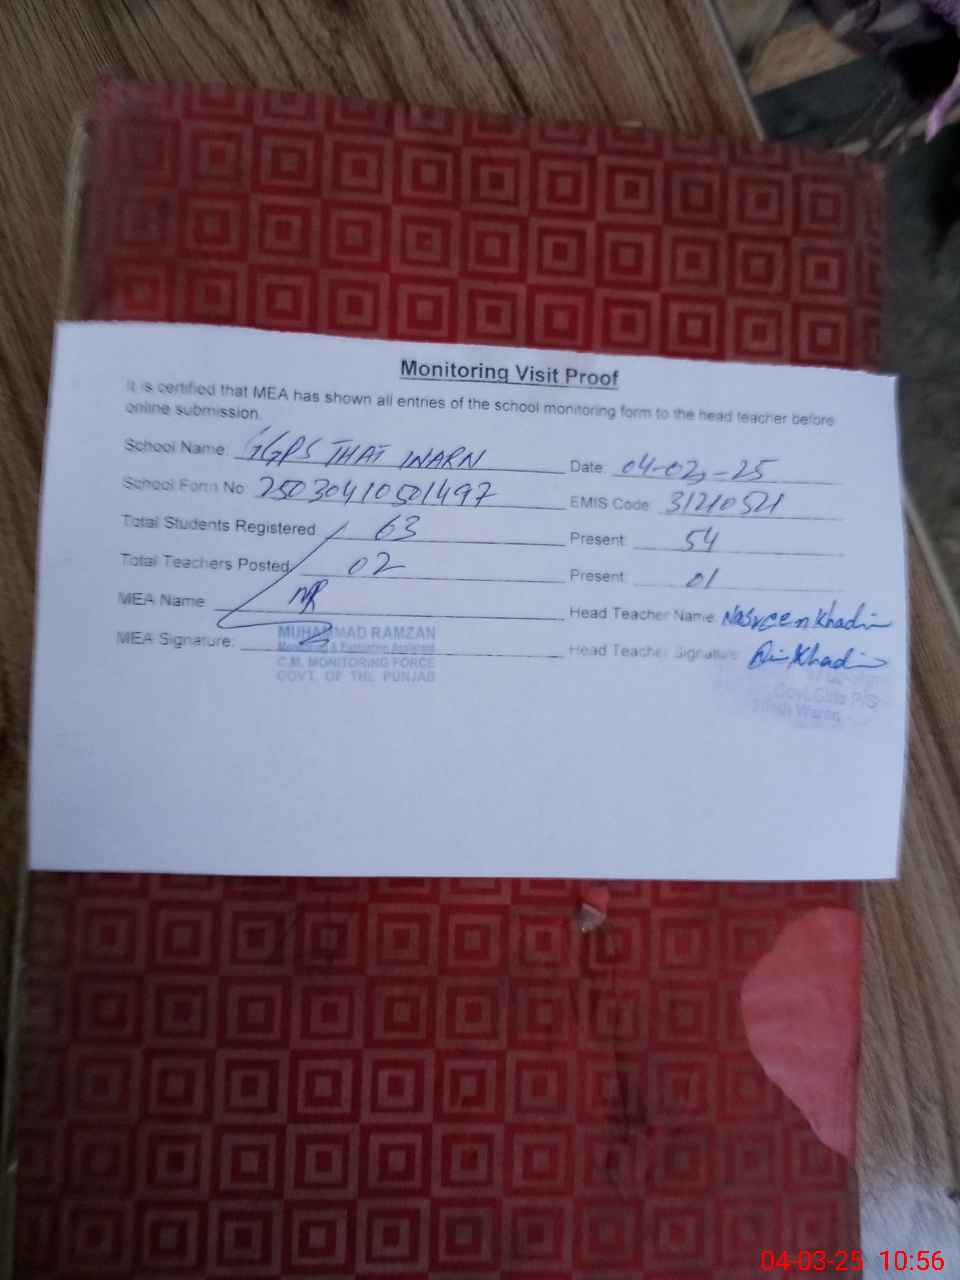 Monitoring Visit Proof
It is certified that MEA has shown all entries of the school monitoring form to the head teacher before
online submission.
School Name: GGPS THAT WARN Date: 04-03-25
School Form No: 25030410501497 EMIS Code: 31210521
Total Students Registered 63 Present: 54
Total Teachers Posted 02 Present: 01
MEA Name MR Head Teacher Name: Nasreen Khadim
MEA Signature: Head Teacher Signature: Khadim
MUHAMMAD RAMZAN
Monitoring & Evaluation Assistant
C.M. MONITORING FORCE
GOVT. OF THE PUNJAB
Govt. Girls P/S
Waran
04-03-25 10:56